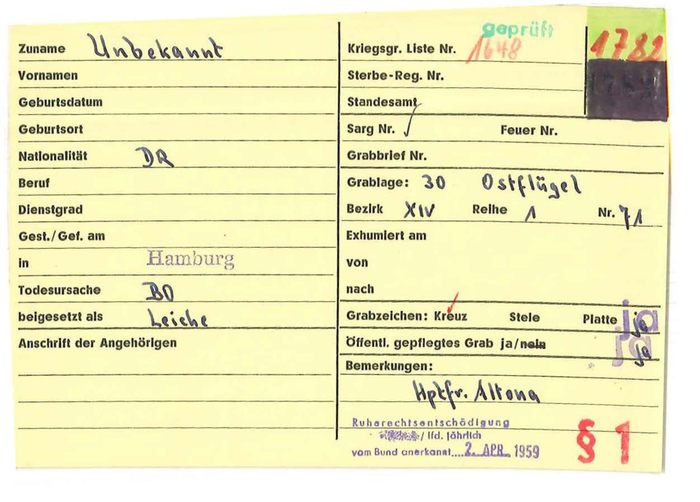 geprüft
Zuname Unbekannt
Vornamen
Geburtsdatum
Geburtsort
Nationalität DR
Beruf
Dienstgrad
Gest./Gef. am
in Hamburg
Todesursache BO
beigesetzt als Leiche
Anschrift der Angehörigen
Kriegsgr. Liste Nr. 1648
1782
Sterbe-Reg. Nr.
Standesamt
Sarg Nr. Feuer Nr.
Grabbrief Nr.
Grablage: 30 Ostflügel
Bezirk XIV Reihe 1 Nr. 71
Exhumiert am
von
nach
Grabzeichen: Kreuz Stele Platte ja
Öffentl. gepflegtes Grab ja/nein ja
Bemerkungen:
Hptfr. Altona
Ruherechtsentschädigung
/ lfd. jährlich
vom Bund anerkannt 2. APR. 1959
§ 1